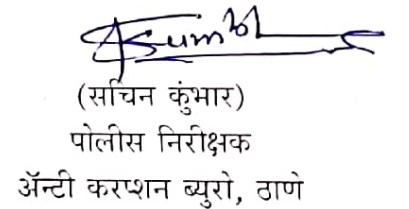 (सचिन कुंभार)
पोलीस निरीक्षक
ॲन्टी करप्शन ब्युरो, ठाणे